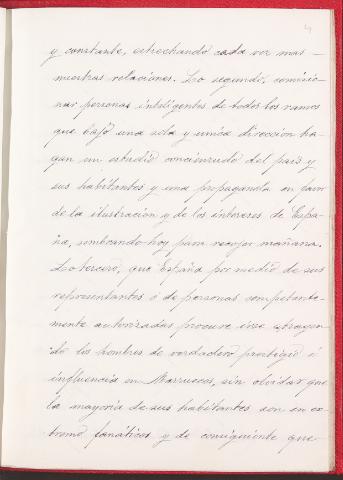 4
y constante, estrechando cada vez mas
nuestras relaciones. Lo segundo, comisio-
nar personas inteligentes de todos los ramos
que bajo una sola y unica direccion ha-
gan un estudio concienzudo del pais y
sus habitantes y una propaganda en favor
de la ilustración y de los intereses de Espa-
ña, sembrando hoy para recojer mañana.
Lo tercero, que España por medio de sus
representantes ó de personas competente-
mente autorizadas procure irse atrayen-
do los hombres de verdadero prestigio é
influencia en Marruecos, sin olvidar que
la mayoria de sus habitantes son en es-
tremo fanáticos y de consiguiente que